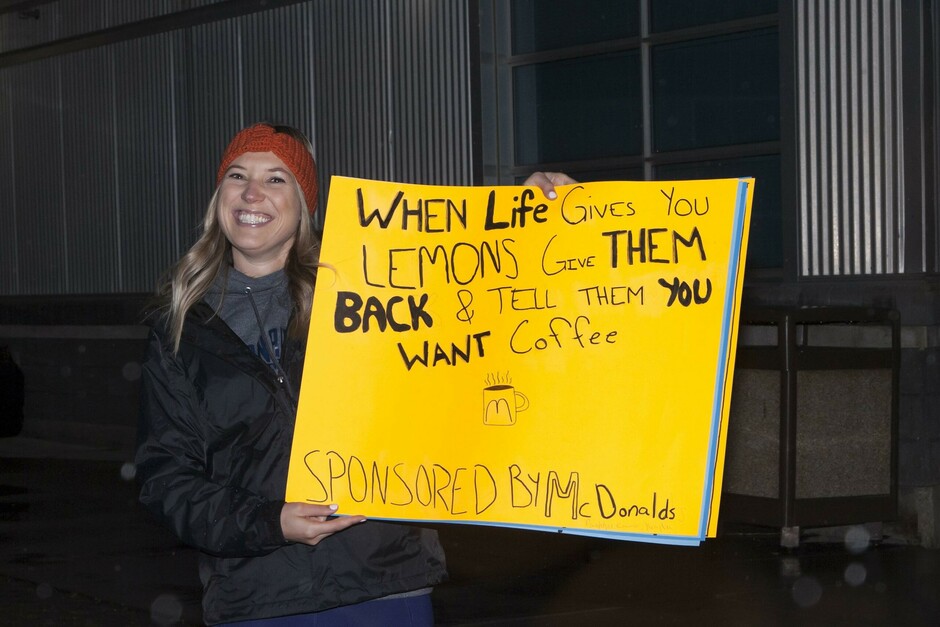 WHEN Life GIVES YOU
LEMONS GIVE THEM
BACK & TELL THEM YOU
WANT Coffee
M
SPONSORED BY McDonalds